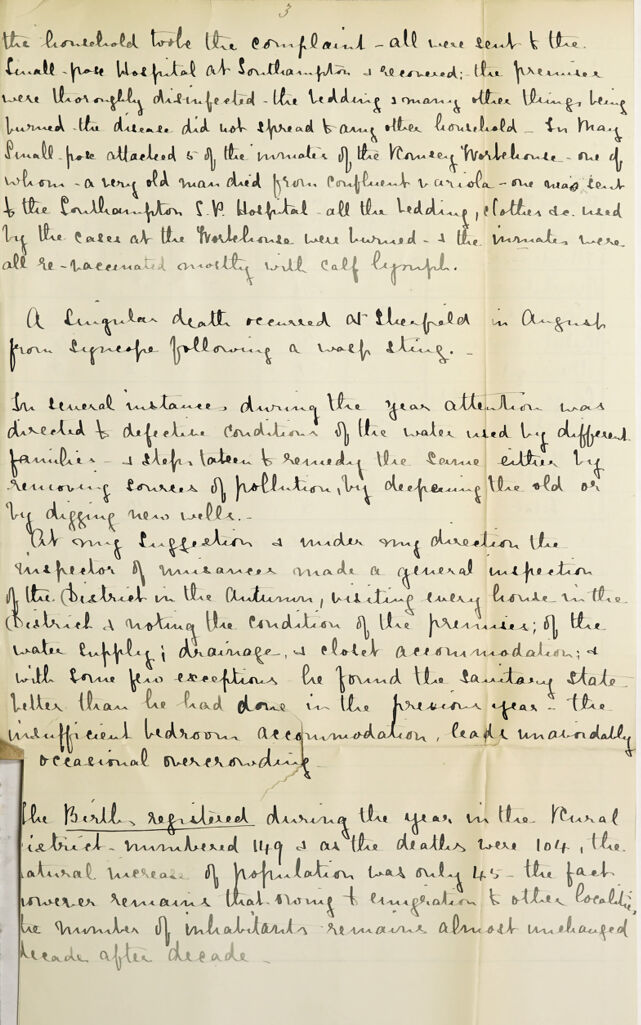 3
the household took the complaint - all were sent to the
Small-pox Hospital at Southampton & recovered; the premises
were thoroughly disinfected - the bedding & many other things being
burned - the disease did not spread to any other household - In May
Small-pox attacked 5 of the inmates of the Romsey Workhouse - one of
whom - a very old man died from confluent variola - one was sent
to the Southampton S.P. Hospital - all the bedding, clothes &c. used
by the cases at the Workhouse were burned - & the inmates were
all re-vaccinated mostly with calf lymph.
A Singular death occurred at Sherfield in August
from Syncope following a wasp sting. -
In several instances during the year attention was
directed to defective conditions of the water used by different
families - & steps taken to remedy the same either by
removing sources of pollution, by deepening the old or
by digging new wells. -
At my Suggestion & under my direction the
inspector of nuisances made a general inspection
of the District in the Autumn, visiting every house in the
District & noting the condition of the premises; of the
water supply; drainage, & closet accommodation; &
with some few exceptions he found the sanitary state
better than he had done in the previous year - the
insufficient bedroom accommodation, leads unavoidably
occasional overcrowding -
the Births registered during the year in the Rural
istrict - numbered 149 & as the deaths were 104, the
atural increase of population was only 45 - the fact
however remains that owing to emigration to other localities,
he number of inhabitants remains almost unchanged
decade after decade -